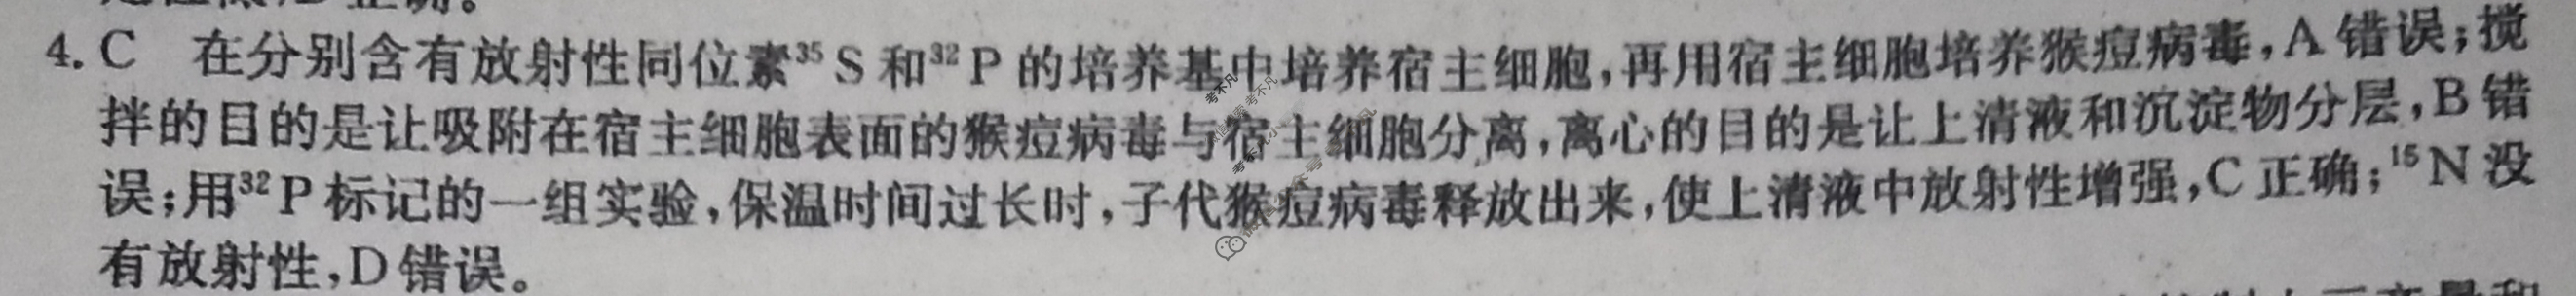 正确。
4. C 在分别含有放射性同位素³⁵S和³²P的培养基中培养宿主细胞,再用宿主细胞培养猴痘病毒,A错误;搅
拌的目的是让吸附在宿主细胞表面的猴痘病毒与宿主细胞分离,离心的目的是让上清液和沉淀物分层,B错
误;用³²P标记的一组实验,保温时间过长时,子代猴痘病毒释放出来,使上清液中放射性增强,C正确;¹⁵N没
有放射性,D错误。